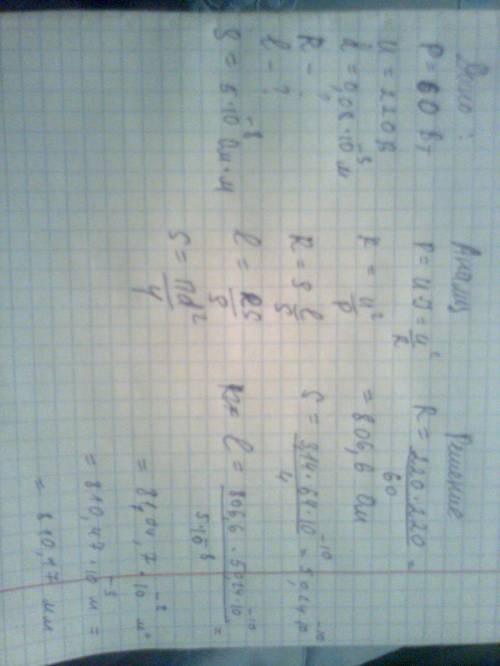 Дано:
P = 60 Вт
U = 220 В
d = 0,08·10⁻³ м
R - ?
l - ?
ρ = 5·10⁻⁸ Ом·м
Анализ
P = UI = U²/R
R = U²/P
R = ρ l/S
l = RS/ρ
S = πd²/4
Решение
R = 220·220/60 =
= 806,6 Ом
S = 3,14·64·10⁻¹⁰/4 = 50,24·10⁻¹⁰
l = 806,6·50,24·10⁻¹⁰/5·10⁻⁸ =
= 810,47·10⁻³ м =
= 810,47 мм